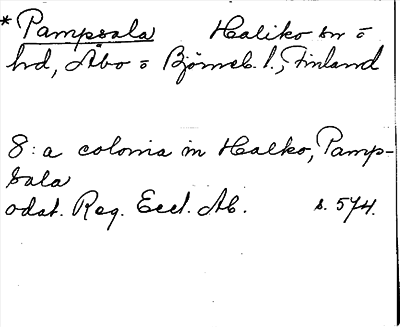 * Pampsala Haliko sn o
hd, Åbo o Björneb. l., Finland
8: a colonia in Halko, Pamp-
sala
odat. Reg. Eccl. Ab. s. 574.